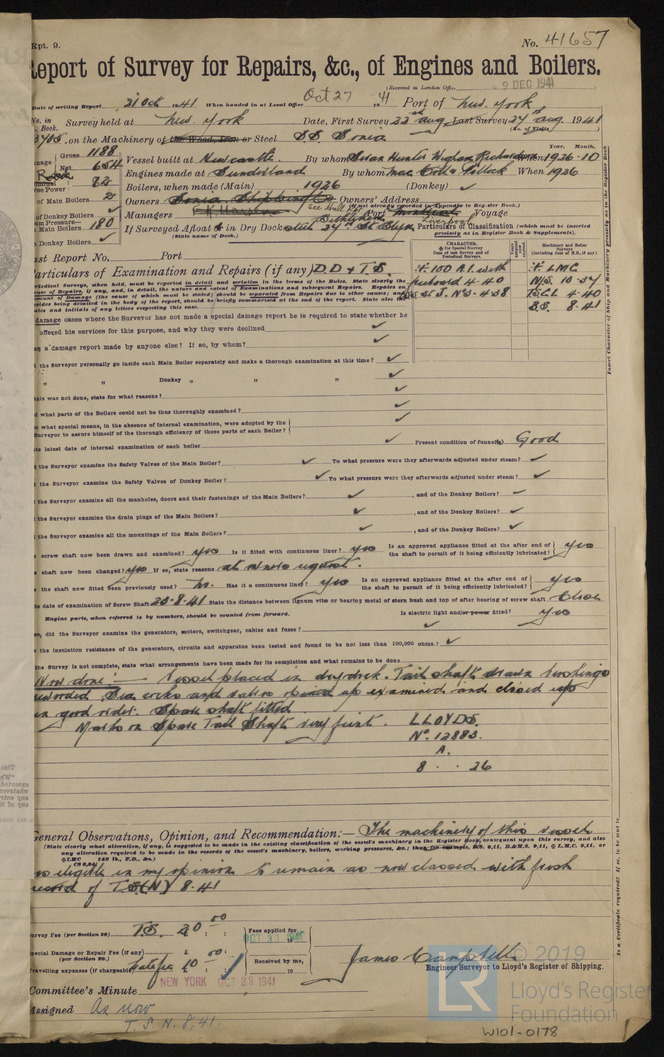 Rpt. 9.
No. 41657
Report of Survey for Repairs, &c., of Engines and Boilers.
(Received at London Office 9 DEC 1941
Date of writing Report 21 Oct 1941 When handed in at Local Office Oct 27 1941 Port of New York
No. in Survey held at New York Date, First Survey 22nd aug Last Survey 27th aug. 1941
on the Machinery of the Wood, Iron or Steel S.S. Sonia
Gross 1188 Vessel built at Newcastle. By whom Swan Hunter Wigham Richardson When 1926-10
Net 654 Engines made at Sunderland By whom When 1926
Boilers, when made (Main) 1926 (Donkey) ✓
of Main Boilers 2 Owners Sonia Shipping Co Owners' Address
(if not already recorded in Appendix to Register Book.)
of Donkey Boilers ✓ Managers Port Montreal Voyage Liverpool
Main Boilers 180 If Surveyed Afloat or in Dry Dock
(State name of Dock.)
Donkey Boilers ✓
Particulars of Classification (which must be inserted precisely as in Register Book & Supplements).
Last Report No. Port
Particulars of Examination and Repairs (if any) D D & T. S.
+ 100 A.1. with freeboard 4-40
S.S. No 3 - 4-38
+ LMC
10-37
T.S.CL 4-40
B.S. 8-41
damage cases where the Surveyor has not made a special damage report he is required to state whether he
offered his services for this purpose, and why they were declined ✓
a damage report made by anyone else? If so, by whom? ✓
the Surveyor personally go inside each Main Boiler separately and make a thorough examination at this time? ✓
" " Donkey " " " ✓
this was not done, state for what reasons? ✓
what parts of the Boilers could not be thus thoroughly examined? ✓
what special means, in the absence of internal examination, were adopted by the
Surveyor to assure himself of the thorough efficiency of those parts of each Boiler? ✓
date of internal examination of each boiler ✓ Present condition of funnel(s) Good
the Surveyor examine the Safety Valves of the Main Boiler? ✓ To what pressure were they afterwards adjusted under steam? ✓
the Surveyor examine the Safety Valves of Donkey Boiler? ✓ To what pressure were they afterwards adjusted under steam? ✓
the Surveyor examine all the manholes, doors and their fastenings of the Main Boilers? ✓ , and of the Donkey Boilers? ✓
the Surveyor examine the drain plugs of the Main Boilers? ✓ , and of the Donkey Boilers? ✓
the Surveyor examine all the mountings of the Main Boilers? ✓ , and of the Donkey Boilers? ✓
screw shaft now been drawn and examined? yes Is it fitted with continuous liner? yes Is an approved appliance fitted at the after end of the shaft to permit of it being efficiently lubricated? yes
shaft now been changed? yes If so, state reasons at owners request.
the shaft now fitted been previously used? No. Has it a continuous liner? yes Is an approved appliance fitted at the after end of the shaft to permit of it being efficiently lubricated? yes
date of examination of Screw Shaft 23-8-41 State the distance between lignum vitæ or bearing metal of stern bush and top of after bearing of screw shaft Close
Engine parts, when referred to by numbers, should be counted from forward. Is electric light and/or power fitted? yes
so, did the Surveyor examine the generators, motors, switchgear, cables and fuses? ✓
the insulation resistance of the generators, circuits and apparatus been tested and found to be not less than 100,000 ohms? ✓
the Survey is not complete, state what arrangements have been made for its completion and what remains to be done
Now done:- Vessel placed in drydock. Tail shaft drawn bushings
rewooded Sea cocks and valves opened up examined and closed up
in good order. Spare shaft fitted.
Marks on Spare Tail Shaft LLOYDS.
No. 12883.
A.
8 . . 26
General Observations, Opinion, and Recommendation:— The machinery of this vessel
(State clearly what alteration, if any, is suggested to be made in the existing classification of the vessel's machinery in the Register Book, subsequent upon this survey, and also
any alteration required to be made in the records of the vessel's machinery, boilers, working pressures, &c.; thus, for example, B.S. 9,11, B.&M.S. 9,11, ✠ L.M.C. 9,11, or
✠ LMC 140 lb., F.D., &c.)
is eligible in my opinion to remain as now classed with fresh
record of T.S.(N) 8-41
Survey Fee (per Section 29) T.S. 20 00 Fees applied for OCT 31 1941
Special Damage or Repair Fee (if any) (per Section 29.)
Travelling expenses (if chargeable) 10 00 Received by me,
James Campbell
Engineer Surveyor to Lloyd's Register of Shipping.
Committee's Minute NEW YORK OCT 29 1941
Assigned As now
T. S. N. 8,41.
© 2019
LR Lloyd's Register Foundation
W101-0178